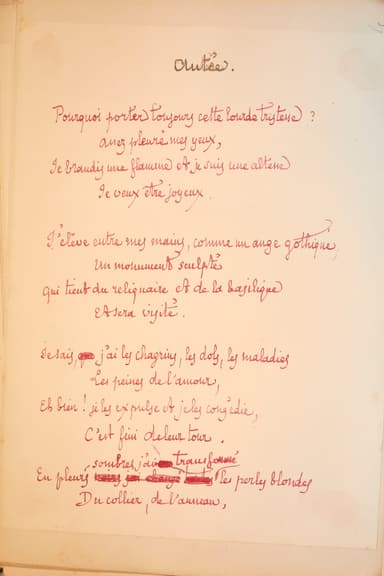 Antée.
Pourquoi porter toujours cette lourde tristesse ?
Assez pleuré mes yeux,
Je brandis une flamme et je suis une altesse
Je veux être joyeux.
J'élève entre mes mains, comme un ange gothique,
Un monument sculpté
Qui tient du reliquaire et de la basilique
Et sera visité.
Je sais, j'ai les chagrins, les dols, les maladies
Les peines de l'amour,
Eh bien ! je les expulse et je les congédie,
C'est fini de leur tour.
sombres j'ai transformé
En pleurs les perles blondes
Du collier, de l'anneau,